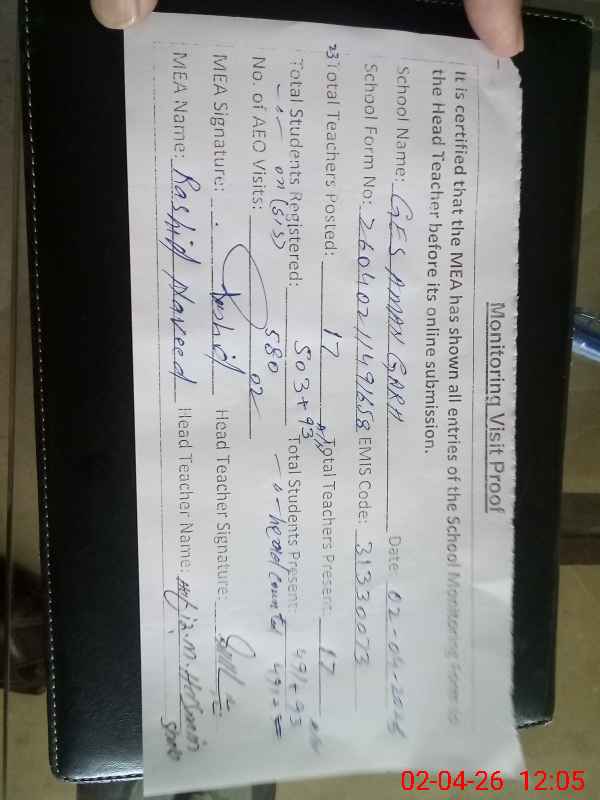 Monitoring Visit Proof
It is certified that the MEA has shown all entries of the School Monitoring Form to
the Head Teacher before its online submission.
School Name: GES AMAN GARH Date: 02-04-2026
School Form No: 26040211491658 EMIS Code: 31330073
Total Teachers Posted: 17 Total Teachers Present: 17
Total Students Registered: 503+93 Total Students Present: 491+93
on (SIS) 580 head counted 491
No. of AEO Visits: 02
MEA Signature: Rashid Head Teacher Signature:
MEA Name: Rashid Naveed Head Teacher Name:
02-04-26 12:05